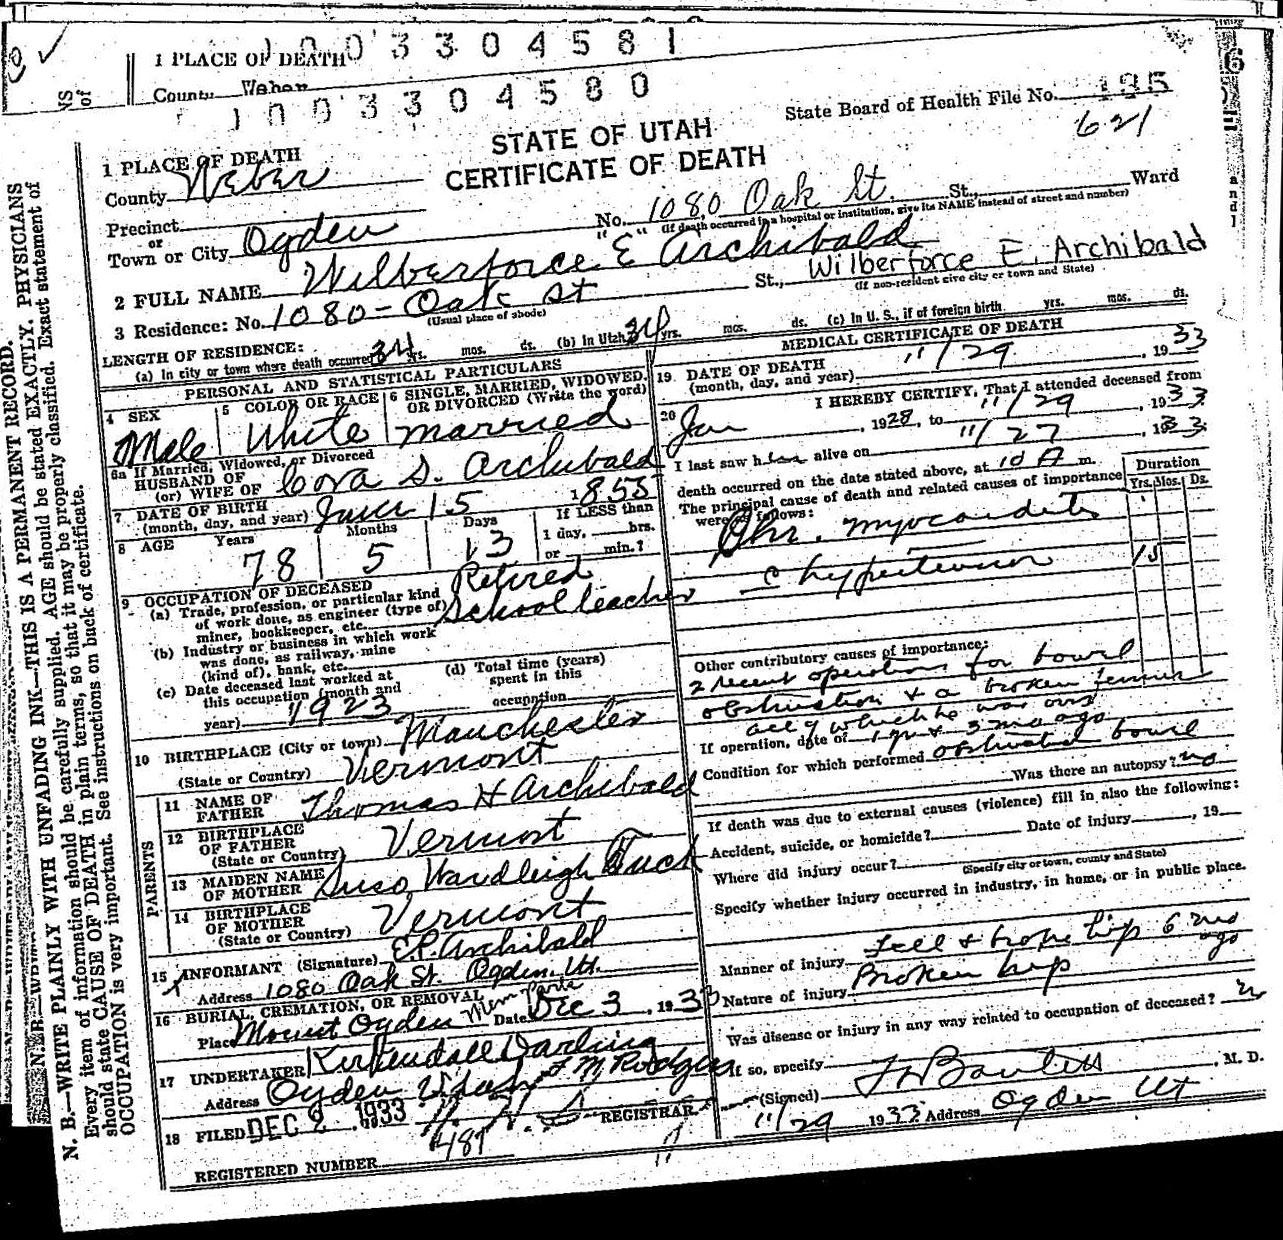 1 PLACE OF DEATH
1003304581
County Weber
1003304580
NS
of
State Board of Health File No. 195
621
STATE OF UTAH
CERTIFICATE OF DEATH
1 PLACE OF DEATH
County Weber
Precinct
or
Town or City Ogden
No. 1080 Oak St. St., Ward
(If death occurred in a hospital or institution, give its NAME instead of street and number)
2 FULL NAME Wilberforce E Archibald
Wilberforce E. Archibald
3 Residence: No. 1080 - Oak St St.,
(Usual place of abode)
(If non-resident give city or town and State)
LENGTH OF RESIDENCE:
(a) In city or town where death occurred 34 yrs. mos. ds. (b) In Utah 34 yrs. mos. ds. (c) In U. S., if of foreign birth yrs. mos. ds.
PERSONAL AND STATISTICAL PARTICULARS
4 SEX
Male
5 COLOR OR RACE
White
6 SINGLE, MARRIED, WIDOWED, OR DIVORCED (Write the word)
married
6a If Married, Widowed, or Divorced
HUSBAND OF
(or) WIFE OF Cora S. Archibald
7 DATE OF BIRTH
(month, day, and year) June 15 1855
8 AGE Years Months Days If LESS than
1 day, hrs.
or min.?
78 5 13
9 OCCUPATION OF DECEASED
(a) Trade, profession, or particular kind
of work done, as engineer (type of)
miner, bookkeeper, etc.
Retired
School teacher
(b) Industry or business in which work
was done, as railway, mine
(kind of), bank, etc.
(c) Date deceased last worked at
this occupation (month and
year) 1923
(d) Total time (years)
spent in this
occupation
10 BIRTHPLACE (City or town) Manchester
(State or Country) Vermont
PARENTS
11 NAME OF
FATHER Thomas H Archibald
12 BIRTHPLACE
OF FATHER
(State or Country) Vermont
13 MAIDEN NAME
OF MOTHER Susa Wardleigh Tuck
14 BIRTHPLACE
OF MOTHER
(State or Country) Vermont
15 X INFORMANT (Signature) E.P. Archibald
Address 1080 Oak St. Ogden, Ut.
16 BURIAL, CREMATION, OR REMOVAL
Place Mount Ogden Mem Park Date Dec 3, 1933
17 UNDERTAKER Kirkendall Darling
Address Ogden Utah
18 FILED DEC 2 1933
REGISTRAR
REGISTERED NUMBER 481
MEDICAL CERTIFICATE OF DEATH
19 DATE OF DEATH
(month, day, and year) 11/29, 1933
20 I HEREBY CERTIFY, That I attended deceased from
Jan, 1928, to 11/29, 1933
I last saw him alive on 11/27, 1933
death occurred on the date stated above, at 10 A m.
The principal cause of death and related causes of importance
were as follows:
Duration
Yrs. Mos. Ds.
Chr. myocarditis
c hypertension 15
Other contributory causes of importance:
2 recent operations for bowel
obstruction & a broken femur
all of which he was over
If operation, date of 1 yr & 3 mo ago
Condition for which performed obstruction bowel
Was there an autopsy? no
If death was due to external causes (violence) fill in also the following:
Accident, suicide, or homicide? Date of injury , 19
Where did injury occur?
(Specify city or town, county and State)
Specify whether injury occurred in industry, in home, or in public place.
Manner of injury Fell & broke hip 6 mo
ago
Nature of injury Broken hip
Was disease or injury in any way related to occupation of deceased? no
If so, specify
(Signed) M. D.
11/29 1933 Address Ogden Ut
N. B.—WRITE PLAINLY WITH UNFADING INK—THIS IS A PERMANENT RECORD.
Every item of information should be carefully supplied. AGE should be stated EXACTLY. PHYSICIANS
should state CAUSE OF DEATH in plain terms, so that it may be properly classified. Exact statement of
OCCUPATION is very important. See instructions on back of certificate.